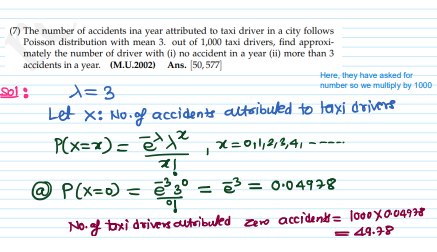 (7) The number of accidents ina year attributed to taxi driver in a city follows
Poisson distribution with mean 3. out of 1,000 taxi drivers, find approxi-
mately the number of driver with (i) no accident in a year (ii) more than 3
accidents in a year. (M.U.2002) Ans. [50, 577]
Here, they have asked for
number so we multiply by 1000
Sol :
λ = 3
Let X: No. of accidents attributed to taxi drivers
P(X=x) = e^-λ λ^x / x! , x = 0,1,2,3,4, -----
(a) P(X=0) = e^-3 3^0 / 0! = e^-3 = 0.04978
No. of taxi drivers attributed zero accidents = 1000 X 0.04978
= 49.78